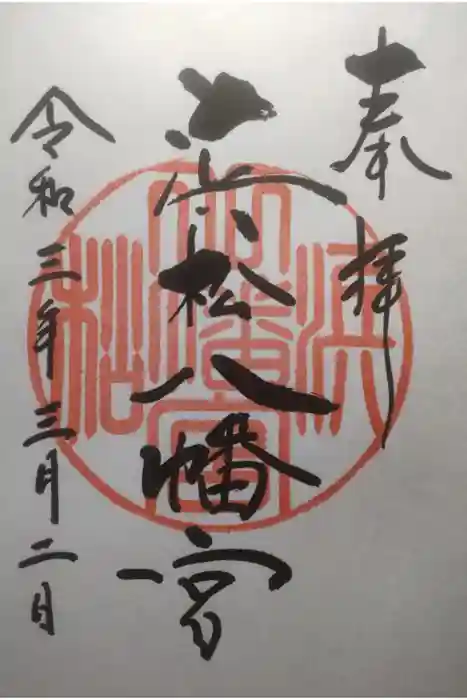 奉拝
浜松八幡宮
令和三年三月二日
浜松
八幡宮